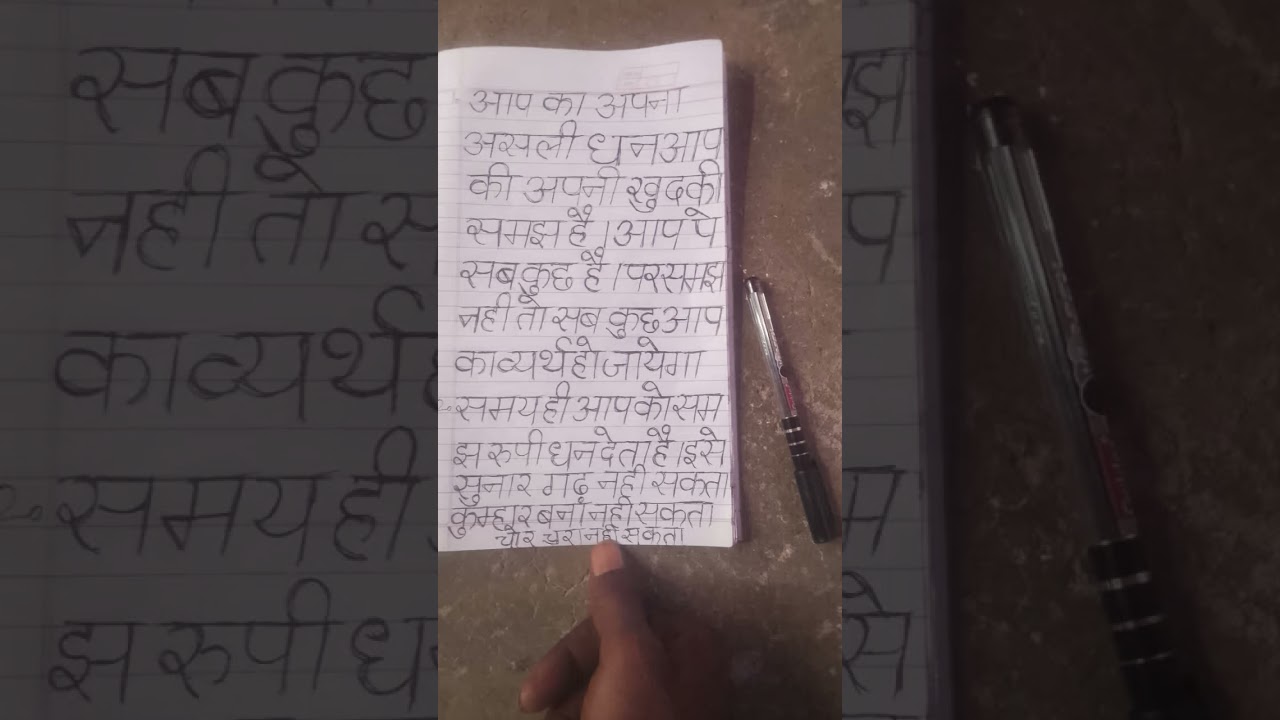 आप का अपना
असली धन आप
की अपनी खुद की
समझ है। आप पे
सब कुछ है। पर समझ
नही तो सब कुछ आप
का व्यर्थ हो जायेगा
समय ही आप को सम
झ रुपी धन देता है। इसे
सुनार गढ़ नही सकता
कुम्हार बना नही सकता
चोर चुरा नही सकता